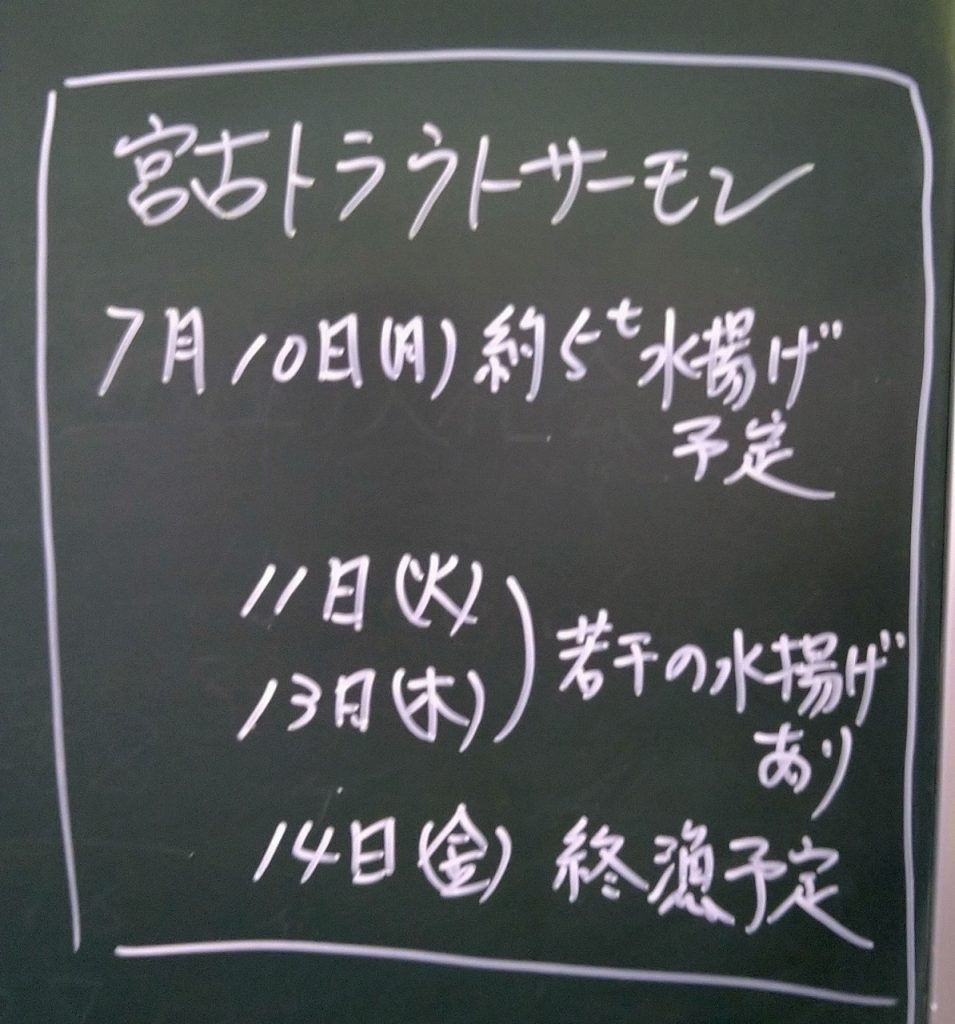 宮古トラウトサーモン
7月10日(月)約5t水揚げ
予定
11日(火)
13日(木)
若干の水揚げ
あり
14日(金)終漁予定